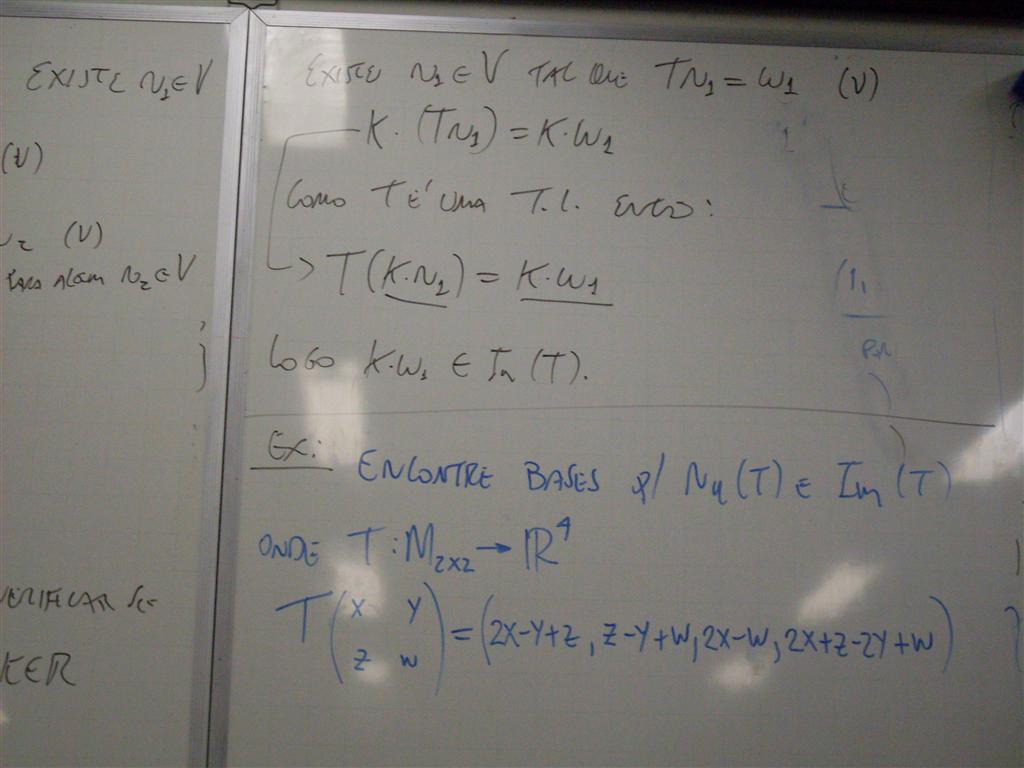 EXISTE v₁ ∈ V
(V)
(V)
PARA ALGUM v₂ ∈ V
VERIFICAR SE
KER
EXISTE v₁ ∈ V TAL QUE Tv₁ = w₁ (V)
K·(Tv₁) = K·w₁
COMO T É UMA T.L. ENTÃO:
T(K·v₁) = K·w₁
LOGO K·w₁ ∈ Im(T).
EX: ENCONTRE BASES p/ Nu(T) E Im(T)
ONDE T: M₂ₓ₂ → ℝ⁴
T(x y
z w) = (2x-y+z, z-y+w, 2x-w, 2x+z-2y+w)